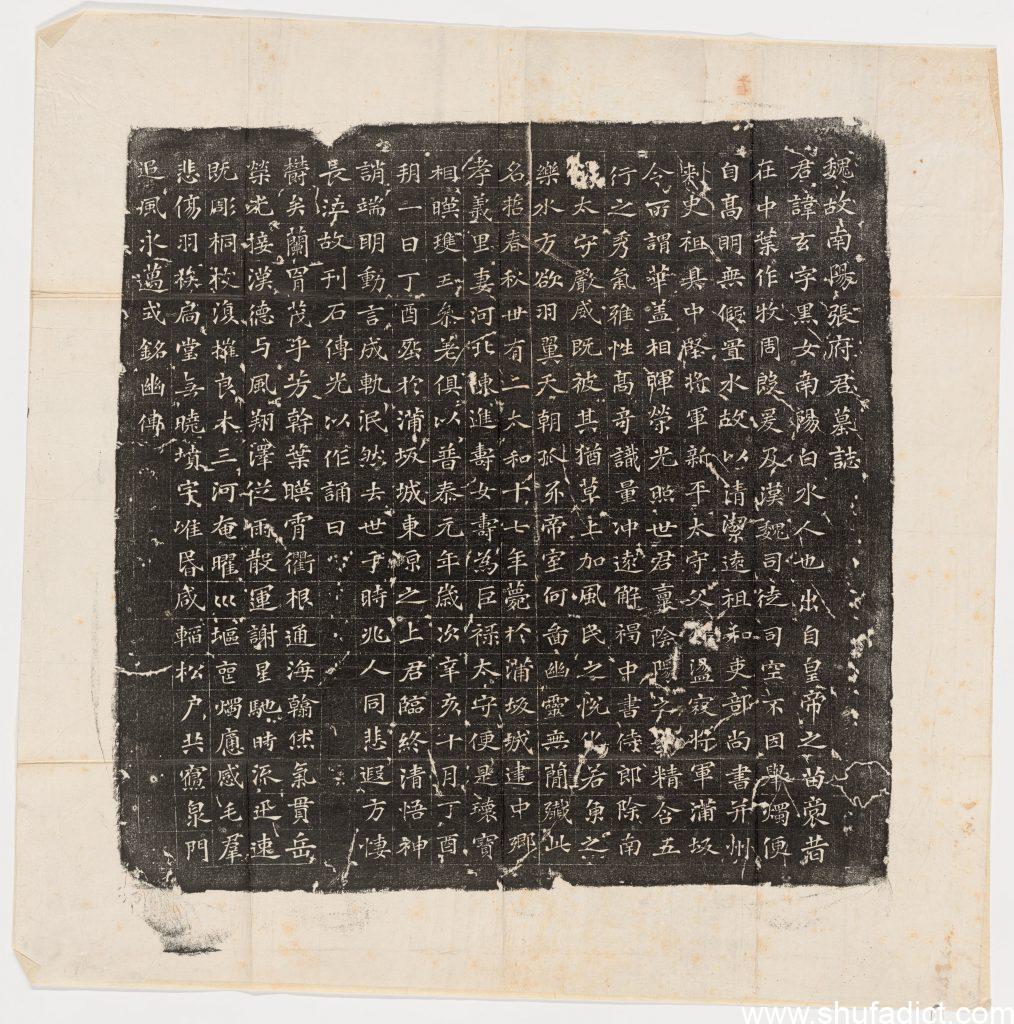 魏故南陽張府君墓誌
君諱玄字黑女南陽白水人也出自皇帝之苗裔昔
在中葉作牧周殷爰及漢魏司徒司空不因舉燭便
自高明無假置水故以清潔遠祖和吏部尚書并州
刺史祖具中堅將軍新平太守父盪寇將軍蒲坂
令所謂華蓋相暉榮光照世君稟陰陽之精含五
行之秀氣雅性高奇識量沖遠解褐中書侍郎除南
太守嚴威既被其猶草上加風民之悅化若魚之
樂水方欲羽翼天朝抓牙帝室何啚幽靈無簡殲此
名哲春秋卅有二太和十七年薨於蒲坂城建中鄉
孝義里妻河北陳進壽女壽為巨祿太守便是瓌寶
相暎瓊玉參差俱以普泰元年歲次辛亥十月丁酉
朔一日丁酉葬於蒲坂城東原之上君臨終清悟神
誚端明動言成軌泯然去世于時兆人同悲遐方悽
長泣故刊石傳光以作誦曰
鬱矣蘭冑茂乎芳幹葉暎霄衢根通海翰休氣貫岳
榮光接漢德与風翔澤從雨散運謝星馳時流迅速
既彫桐枝復摧良木三河奄曜巛塸喪燭痛感毛群
悲傷羽族扃堂無曉墳宇唯昬咸輀松戶共寢泉門
追風永邁式銘幽傳
www.shufadict.com